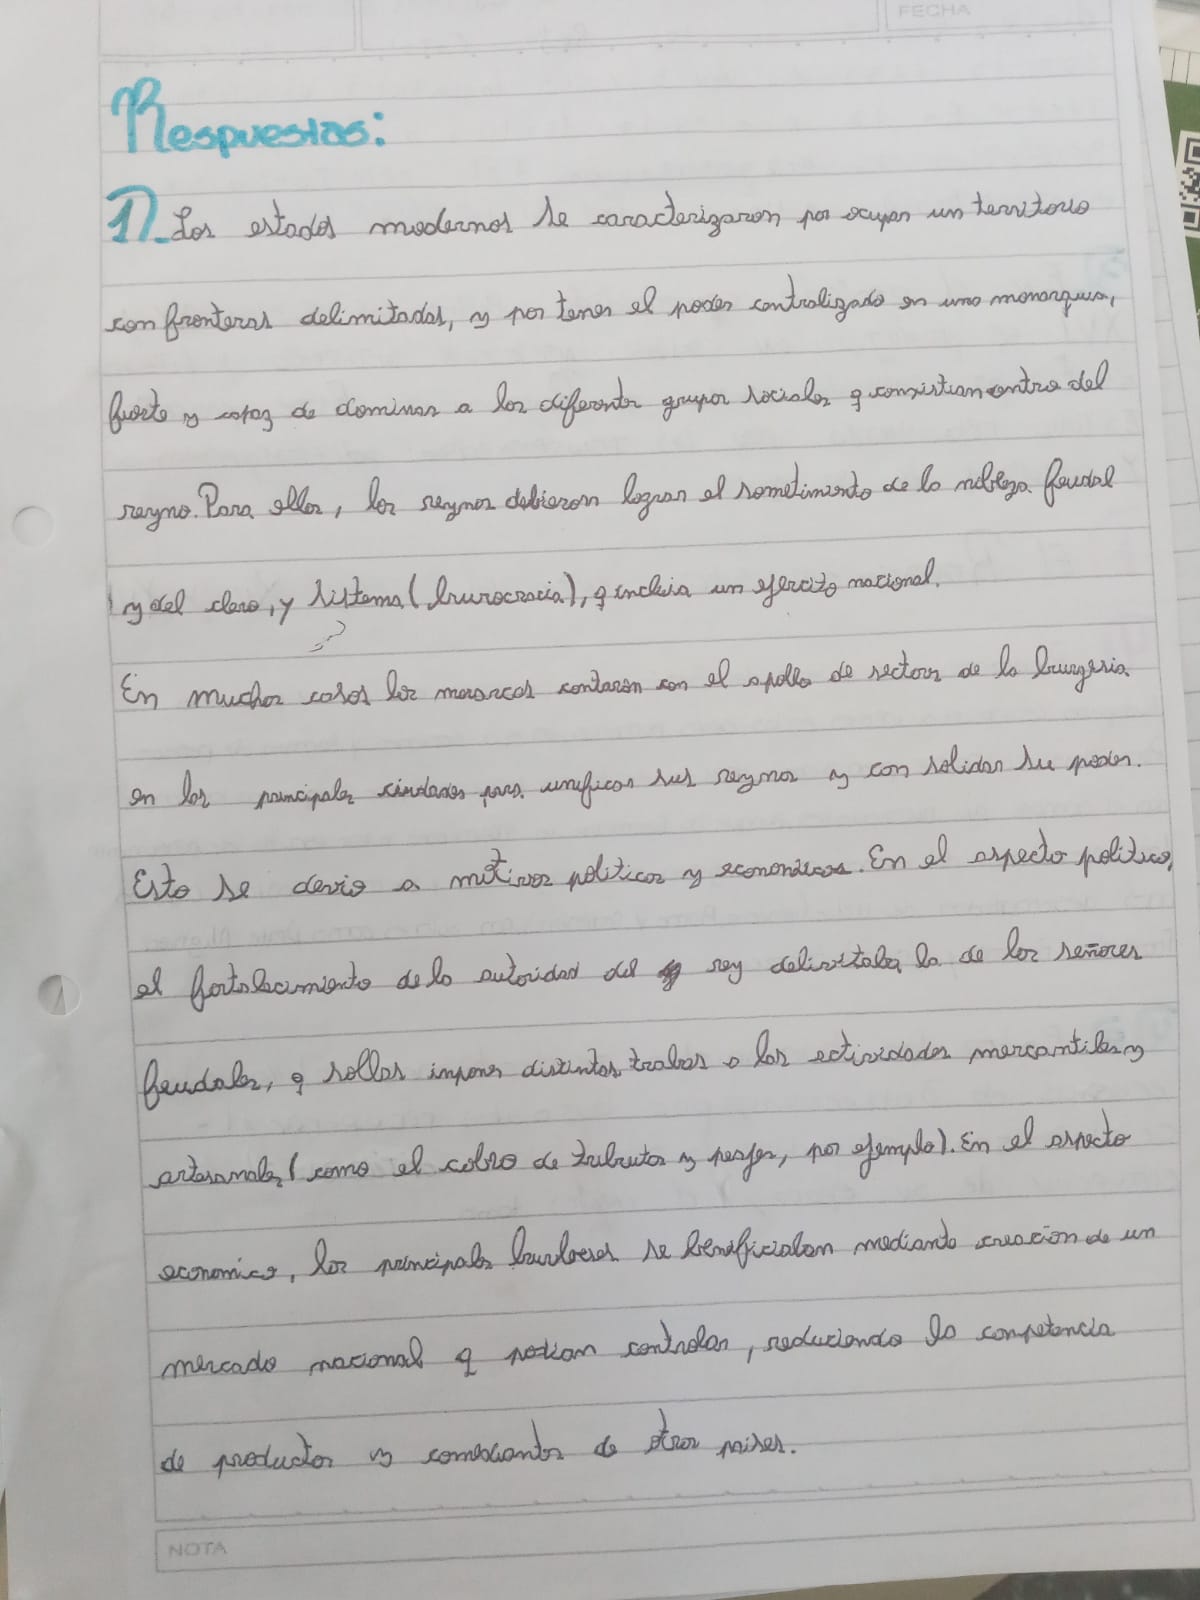 FECHA
Respuestas:
1)_ Los estados modernos se caracterizaron por ocupan un territorio
con fronteras delimitadas, y por tener el poder contralizado en una monarquia,
fuerte y capaz de dominar a los diferentes grupos sociales q consistian entro del
reyno. Para ellos, los reynos debieron lograr el sometimiento de la nobleza feudal
y del clero, y sistema (burocracia), q incluia un ejercito nacional.
En muchos casos los monarcas contaron con el apollo de sectores de la burgeria
en los principales ciudades para unificar sus reynos y con solidar su poder.
Esto se devio a motivos politicos y economicos. En el aspecto politico,
el fortalecimiento de la autoridad del rey delimitaba la de los señores
feudales, q sollas imponer distintas trabas a las actividades mercantiles y
artesanales (como el cobro de tributos y peajes, por ejemplo). En el aspecto
economico, los principales burboeses se beneficiaban mediante creacion de un
mercado nacional q podian controlar, reduciendo la competencia
de productos y comerciantes de otros paises.
NOTA